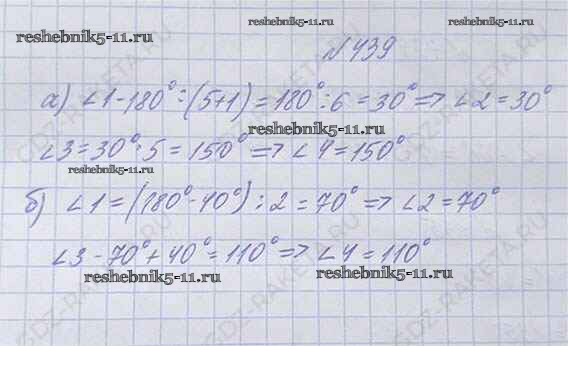 reshebnik5-11.ru
reshebnik5-11.ru
reshebnik5-11.ru
№439
а) ∠1-180°:(5+1)=180°:6=30°=>∠2=30°
reshebnik5-11.ru
∠3=30°·5=150°=>∠4=150°
reshebnik5-11.ru
б) ∠1=(180°-40°):2=70°=>∠2=70°
∠3-70°+40°=110°=>∠4=110°
reshebnik5-11.ru
reshebnik5-11.ru
GDZ-RAKETA.RU